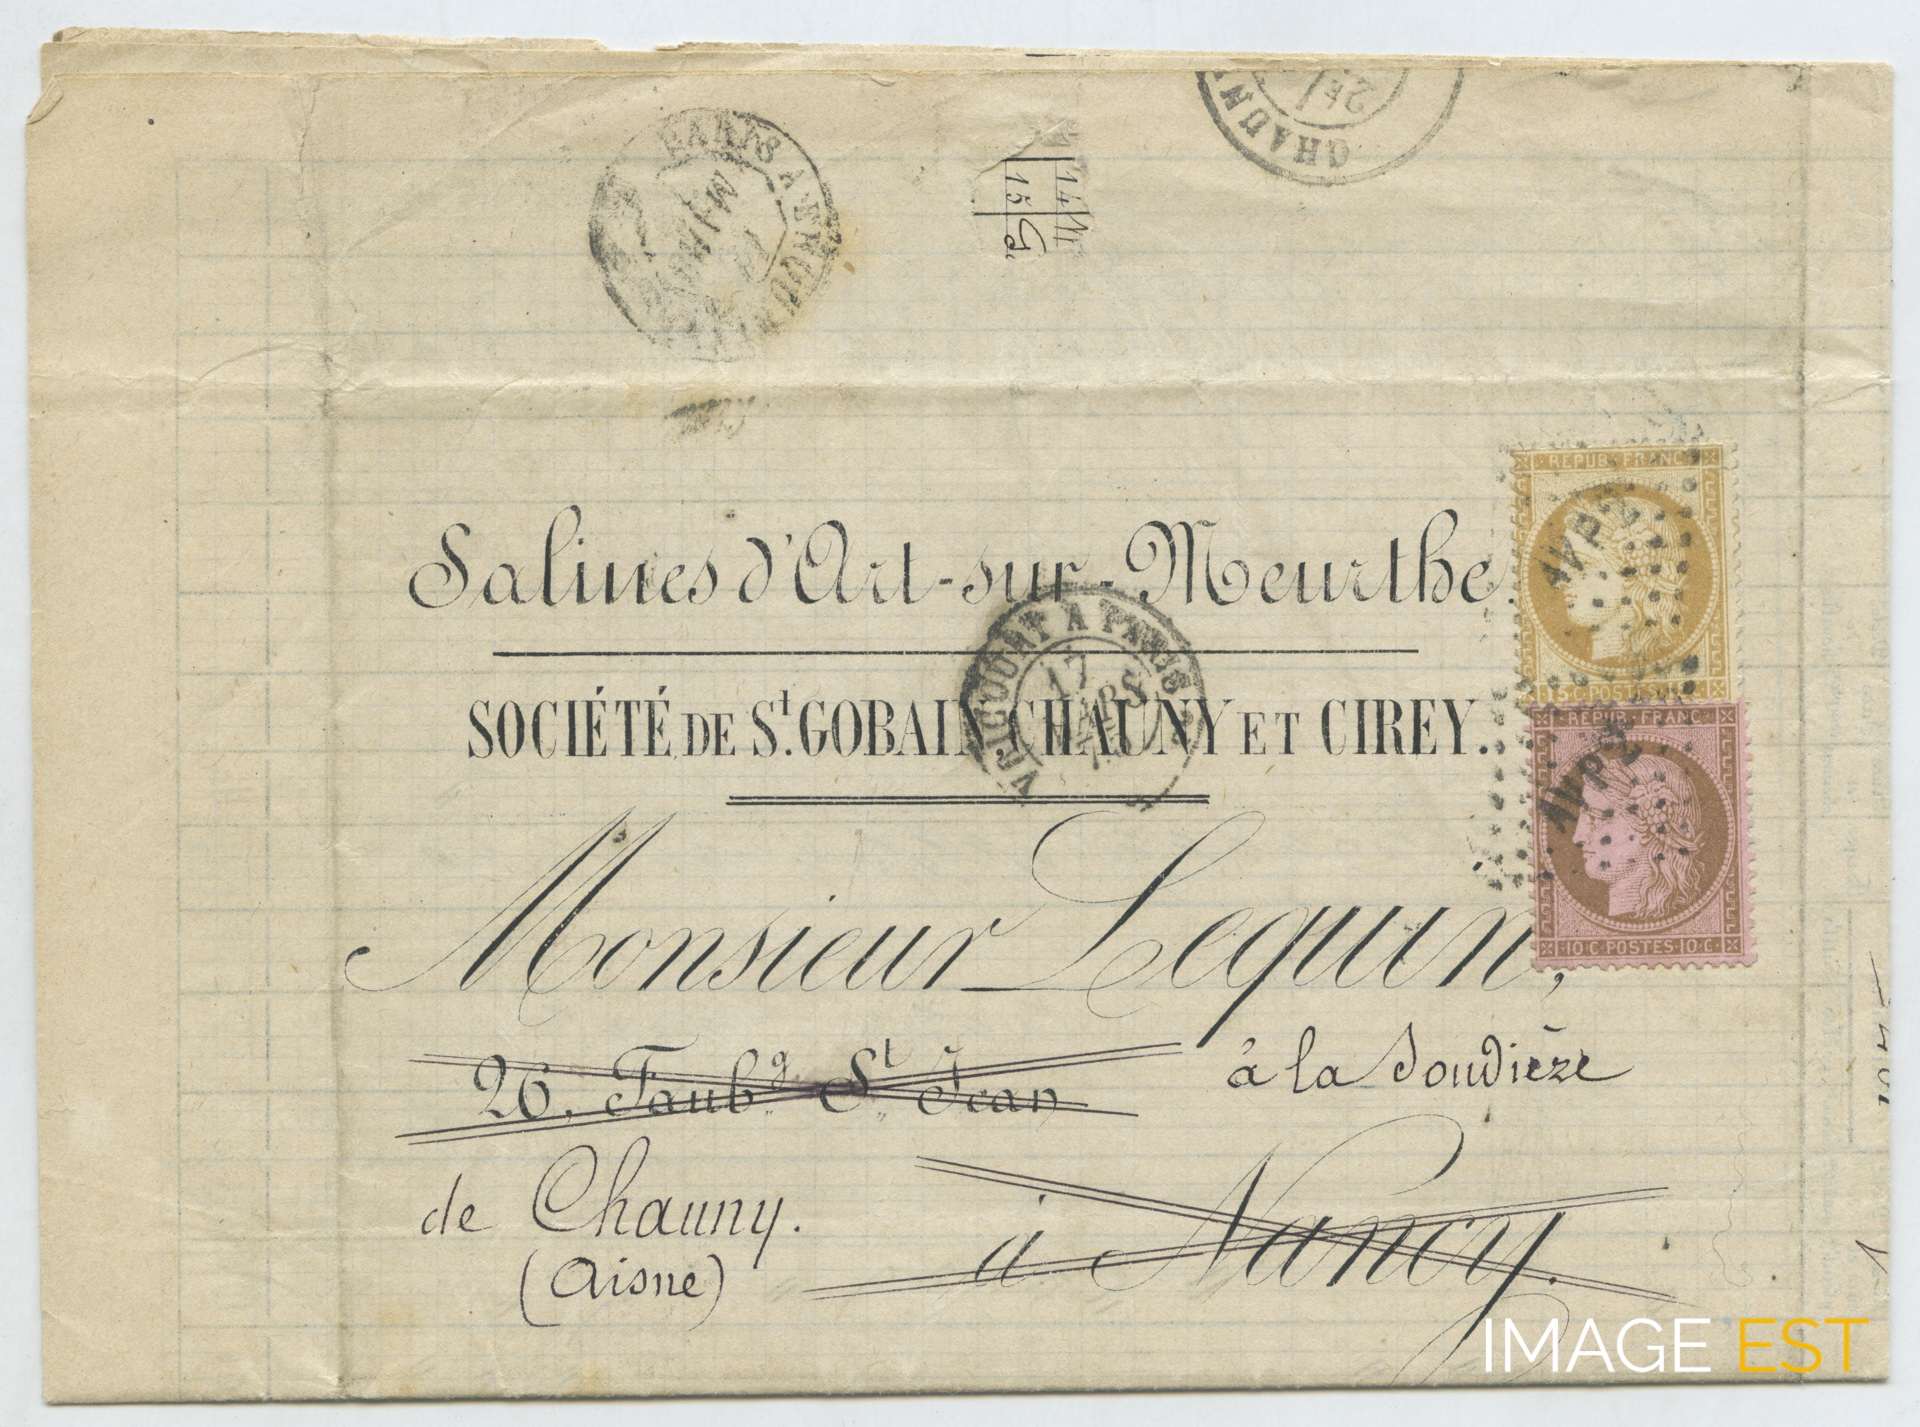 CHAUN
PARIS A
14
15 G.
Salines d'Art-sur-Meurthe.
REPUB. FRANC
15 C. POSTES 15 C.
AVRICOURT A PARIS
17
MARS
SOCIÉTÉ DE St. GOBAIN, CHAUNY ET CIREY.
REPUB. FRANC
10 C. POSTES 10 C.
Monsieur Lequin,
26, Faubg. St. Jean
à la Soudière
de Chauny.
à Nancy.
(Aisne)
IMAGE EST